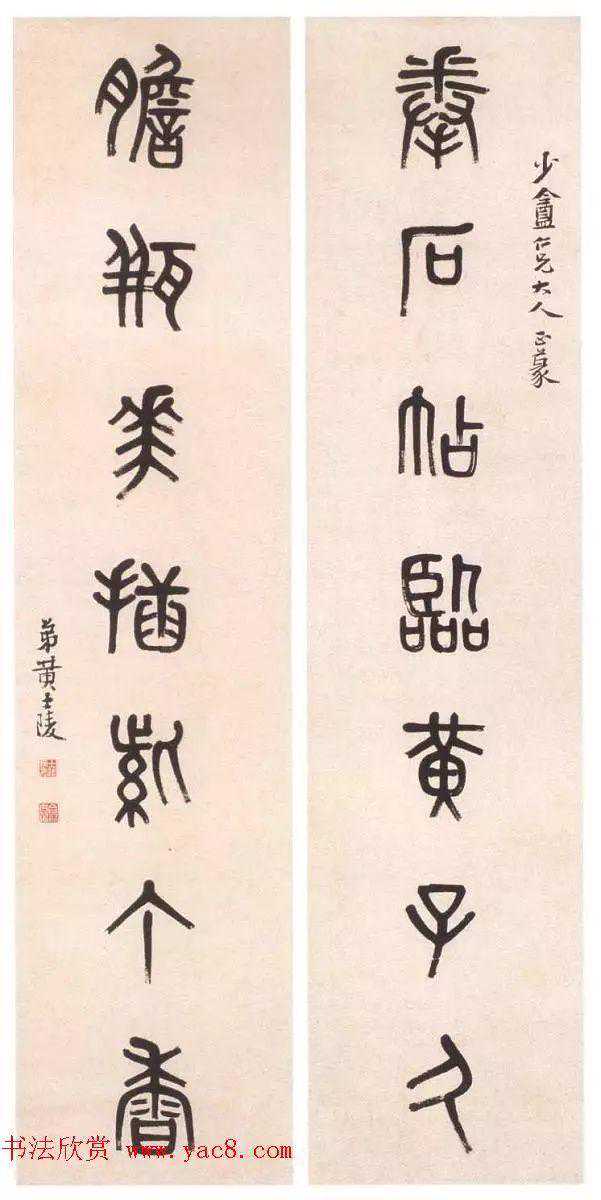 少盦仁兄大人正篆
拳石帖臨黄子久
膽瓶花插紫丁香
弟黄士陵
书法欣赏 www.yac8.com